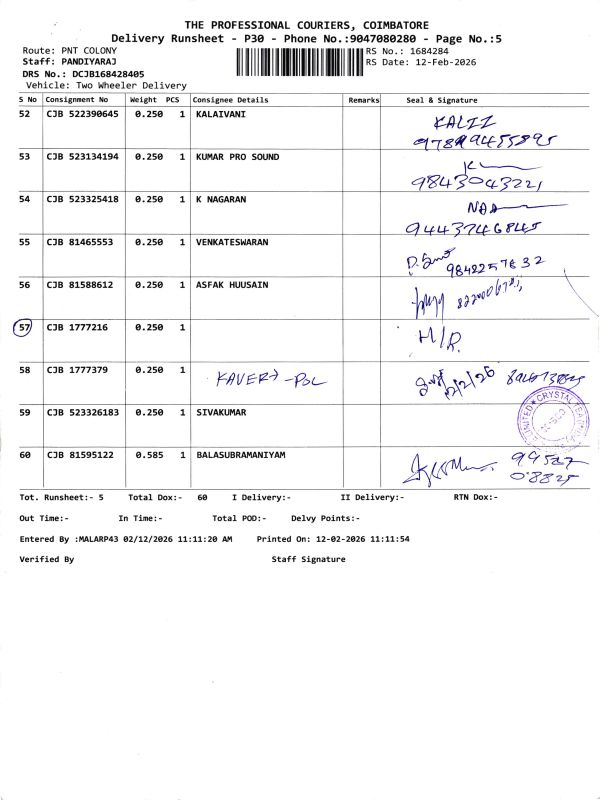 THE PROFESSIONAL COURIERS, COIMBATORE
Delivery Runsheet - P30 - Phone No.:9047080280 - Page No.:5
Route: PNT COLONY RS No.: 1684284
Staff: PANDIYARAJ RS Date: 12-Feb-2026
DRS No.: DCJB168428405
Vehicle: Two Wheeler Delivery
S No Consignment No Weight PCS Consignee Details Remarks Seal & Signature
52 CJB 522390645 0.250 1 KALAIVANI
53 CJB 523134194 0.250 1 KUMAR PRO SOUND
9843043221
54 CJB 523325418 0.250 1 K NAGARAN
9443746845
55 CJB 81465553 0.250 1 VENKATESWARAN
9842257832
56 CJB 81588612 0.250 1 ASFAK HUUSAIN
57 CJB 1777216 0.250 1
58 CJB 1777379 0.250 1 12/2/26
59 CJB 523326183 0.250 1 SIVAKUMAR CRYSTAL
60 CJB 81595122 0.585 1 BALASUBRAMANIYAM
Tot. Runsheet:- 5 Total Dox:- 60 I Delivery:- II Delivery:- RTN Dox:-
Out Time:- In Time:- Total POD:- Delvy Points:-
Entered By :MALARP43 02/12/2026 11:11:20 AM Printed On: 12-02-2026 11:11:54
Verified By Staff Signature